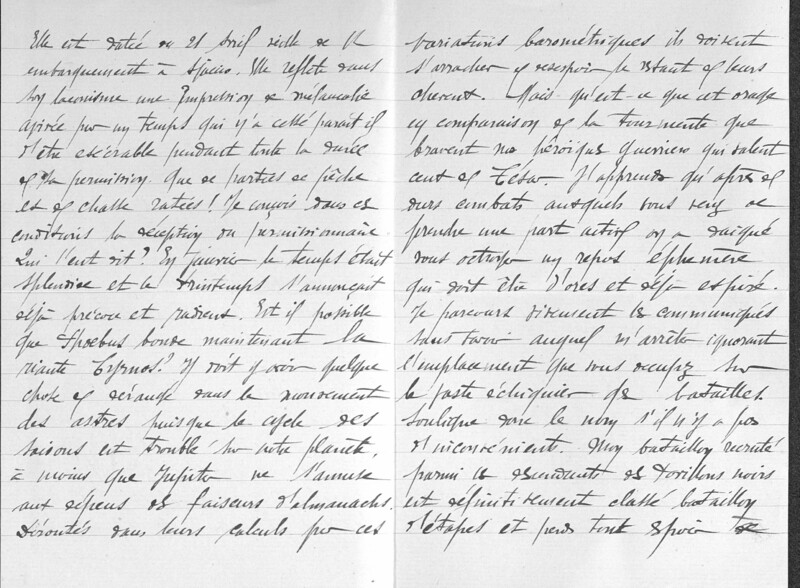 Elle est datée du 21 Avril veille de ll
embarquement à Ajaccio. Elle reflète dans
son laconisme une impression de mélancolie
aigrie par un temps qui n'a cessé parait il
d'être exécrable pendant toute la durée
de sa permission. Que de parties de pêche
et de chasse ratées! Je conçois dans ces
conditions la déception du permissionnaire.
Qui l'eut dit? En Janvier le temps était
splendide et le Printemps s'annonçait
déjà précoce et radieux. Est il possible
que Phoebus boude maintenant la
riante Cyrnos? Il doit y avoir quelque
chose de dérangé dans le mouvement
des astres puisque le cycle des
saisons est troublé sur notre planète,
à moins que Jupiter ne s'amuse
aux dépens des faiseurs d'almanachs.
Déroutés dans leurs calculs par ces
variations barométriques ils doivent
s'arracher de désespoir le restant de leurs
cheveux. Mais qu'est-ce que cet orage
en comparaison de la tourmente que
bravent nos héroïques guerriers qui valent
ceux de César. J'apprends qu'après de
durs combats auxquels vous venez de
prendre une part active on a daigné
vous octroyer un repos éphémère
qui doit être d'ores et déjà expiré.
Je parcours vivement les communiqués
sans savoir auquel m'arrêter ignorant
l'emplacement que vous occupez sur
le vaste échiquier de batailles.
Souligne donc le nom s'il n'y a pas
d'inconvénient. Mon bataillon recruté
parmi les descendants des
est définitivement classé bataillon
d'étapes et perds tout espoir de